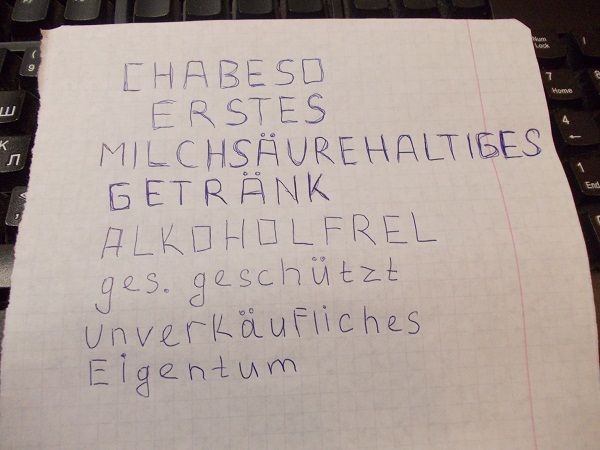 CHABESO
ERSTES
MILCHSÄUREHALTIGES
GETRÄNK
ALKOHOLFREL
ges. geschützt
unverkäufliches
Eigentum
Num Lock
7 Home
4
1 End
Ш
Л